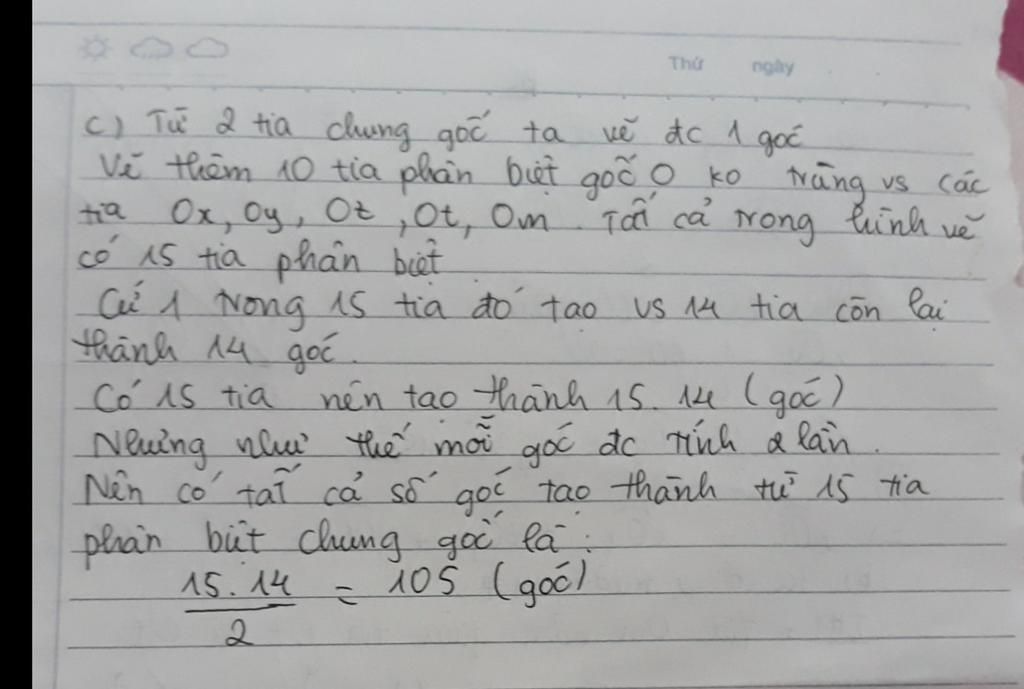 Thứ ngày
c) Từ 2 tia chung gốc ta vẽ đc 1 góc
Vẽ thêm 10 tia phân biệt gốc O ko trùng vs các
tia Ox, Oy, Oz, Ot, Om. Tất cả trong hình vẽ
có 15 tia phân biệt
Cứ 1 trong 15 tia đó tạo vs 14 tia còn lại
thành 14 góc.
Có 15 tia nên tạo thành 15.14 (góc)
Nhưng như thế mỗi góc đc tính 2 lần.
Nên có tất cả số góc tạo thành từ 15 tia
phân biệt chung gốc là:
15.14 = 105 (góc)
2